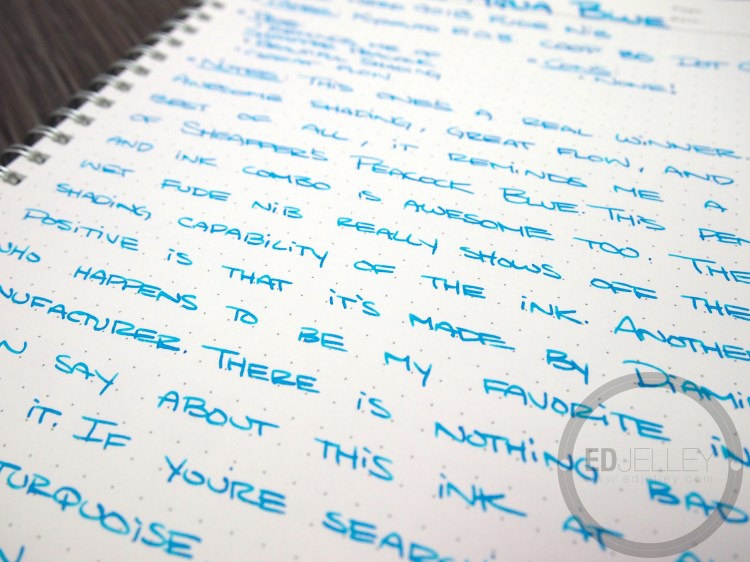 AQUA BLUE
FUDE NIB
• PROS
REMINDS ME OF
SHADING
GREAT FLOW
• CONS
• NONE!
• NOTES: THIS ONE'S A REAL WINNER.
AWESOME SHADING, GREAT FLOW, AND
BEST OF ALL, IT REMINDS ME A
OF SHEAFFER'S PEACOCK BLUE. THIS PEN
AND INK COMBO IS AWESOME TOO. THE
WET FUDE NIB REALLY SHOWS OFF THE
SHADING CAPABILITY OF THE INK. ANOTHE
POSITIVE IS THAT IT'S MADE BY DIAMI
WHO HAPPENS TO BE MY FAVORITE IN
NUFACTURER. THERE IS NOTHING BAD
N SAY ABOUT THIS INK AT
IT. IF YOU'RE SEARC
TURQUOISE
EDJELLEY
www.edjelley.com